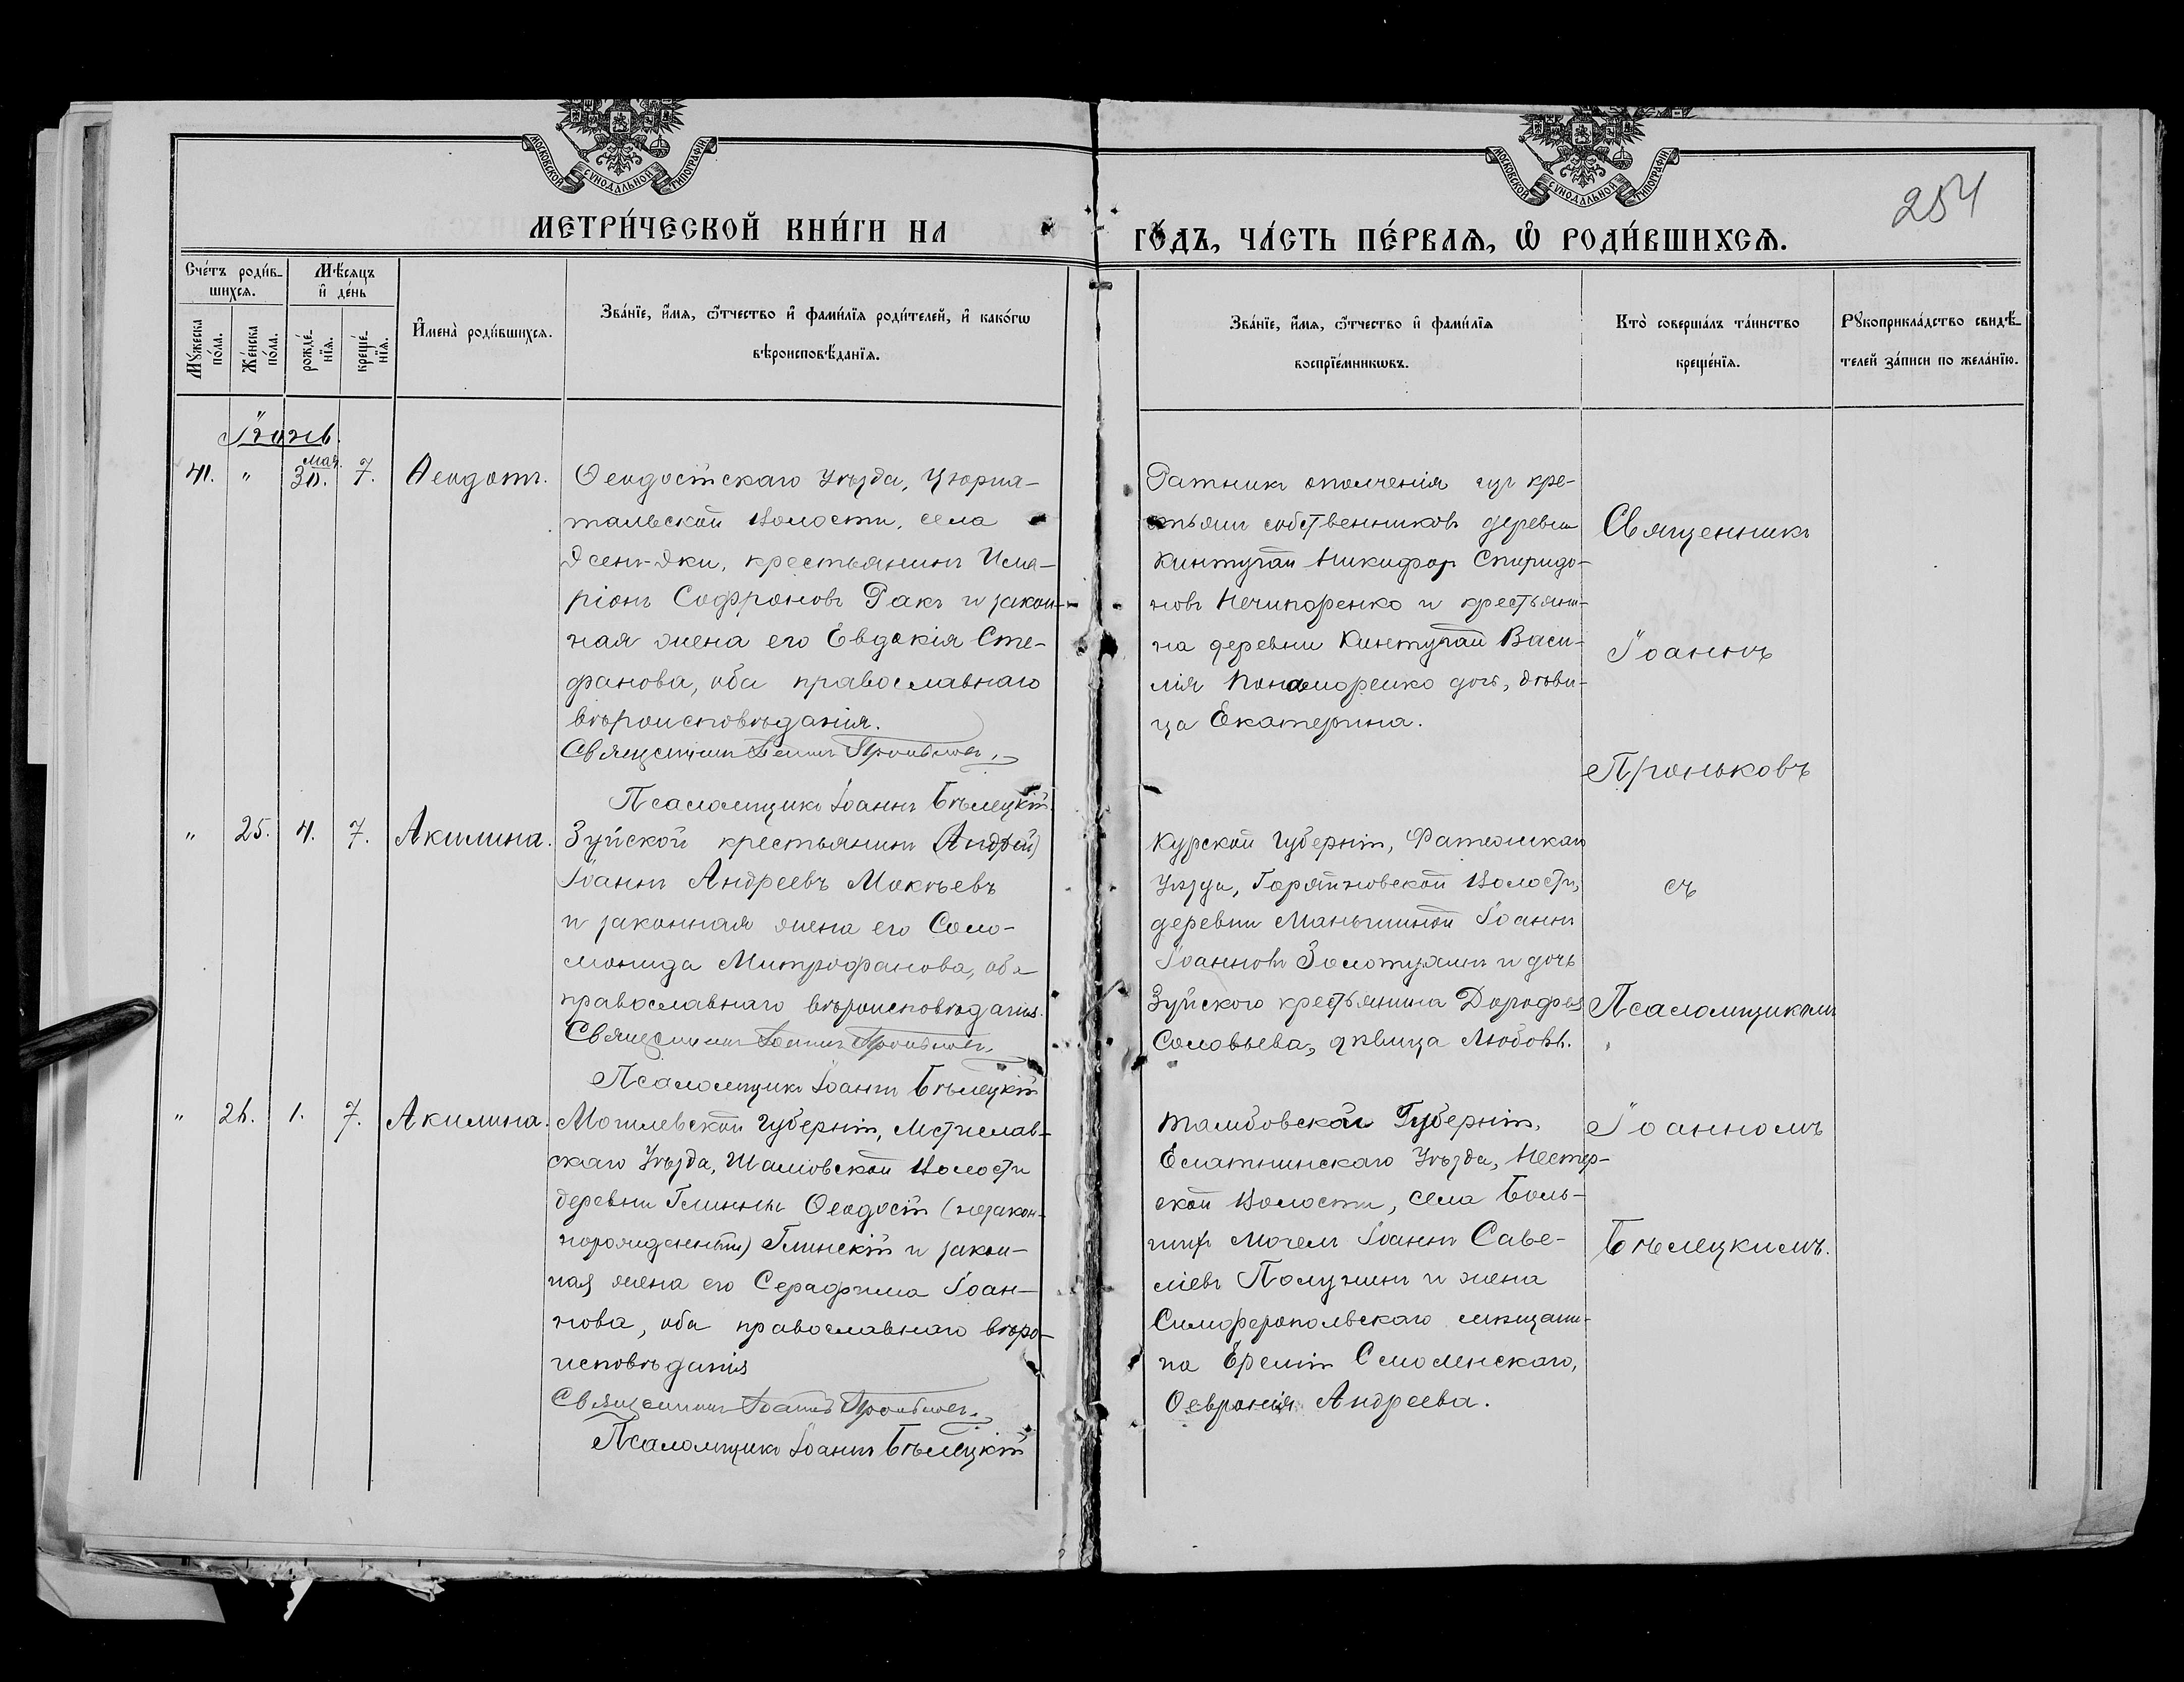 МОСКОВСКОЙ СѴНОДАЛЬНОЙ ТИПОГРАФІИ
МОСКОВСКОЙ СѴНОДАЛЬНОЙ ТИПОГРАФІИ
254
МЕТРИ́ЧЕСКОЙ КНИ́ГИ НА
ГО́ДЪ, ЧА́СТЬ ПЕ́РВАѦ, Ѡ҆ РОДИ́ВШИХСѦ.
Сче́тъ роди́в-
шихсѧ.
Мѣ́сѧцъ
и҆ де́нь
Мꙋ́жеска
по́ла.
Же́нска
по́ла.
рожде́-
нїѧ.
креще́-
нїѧ.
И҆мена̀ роди́вшихсѧ.
Зва́нїе, и҆́мѧ, ѻ҆́тчество и҆ фами́лїѧ роди́телей, и҆ како́гѡ
вѣроисповѣ́данїѧ.
Зва́нїе, и҆́мѧ, ѻ҆́тчество и҆ фами́лїѧ
воспрїе́мникѡвъ.
Кто̀ соверша́лъ та́инство
креще́нїѧ.
Рꙋкоприкла́дство свидѣ́-
телей за́писи по жела́нїю.
Іюнь.
41. " мая 30. 7. Ѳеодотъ.
Ѳеодосійскаго уѣзда, Цюрих-
тальской волости, села
Ясенъ-Яки, крестьянинъ Ила-
ріонъ Софроновъ Ракъ и закон-
ная жена его Евдокія Сте-
фанова, оба православнаго
вѣроисповѣданія.
Священникъ Іоаннъ Проньковъ.
Псаломщикъ Іоаннъ Бѣлецкій
Ратникъ ополченія изъ кре-
стьянъ собственниковъ деревни
Кинтугай Никифоръ Спиридо-
новъ Нечипоренко и крестьяни-
на деревни Кинтугай Васи-
лія Пономоренко дочь, дѣви-
ца Екатерина.
Священникъ
Іоаннъ
Проньковъ
съ
Псаломщикомъ
Іоанномъ
Бѣлецкимъ.
" 25. 4. 7. Акилина.
Зуйской крестьянинъ (Андрей)
Іоаннъ Андреевъ Мокѣевъ
и законная жена его Соло-
монида Митрофанова, оба
православнаго вѣроисповѣданія.
Священникъ Іоаннъ Проньковъ.
Псаломщикъ Іоаннъ Бѣлецкій
Курской Губерніи, Фатежскаго
Уѣзда, волости,
деревни Іоаннъ
Іоанновъ Золотухинъ и дочь
Зуйского крестьянина Дорофея
Соловьева, дѣвица Любовь.
" 26. 1. 7. Акилина.
Могилевской губерніи, Мстислав-
скаго Уѣзда, Шамовской волости
деревни Глинны Ѳеодосій (незакон-
норожденный) Глинскій и закон-
ная жена его Серафима Іоан-
нова, оба православнаго вѣро-
исповѣданія
Священникъ Іоаннъ Проньковъ.
Псаломщикъ Іоаннъ Бѣлецкій
Тамбовской Губерніи,
Елатнинскаго Уѣзда, Нестер-
ской волости, села Боль-
шіе Мочелы Іоаннъ Саве-
ліевъ Полунинъ и жена
Симферопольскаго мѣщани-
на Еремія Смоленскаго,
Ѳевронія Андреева.